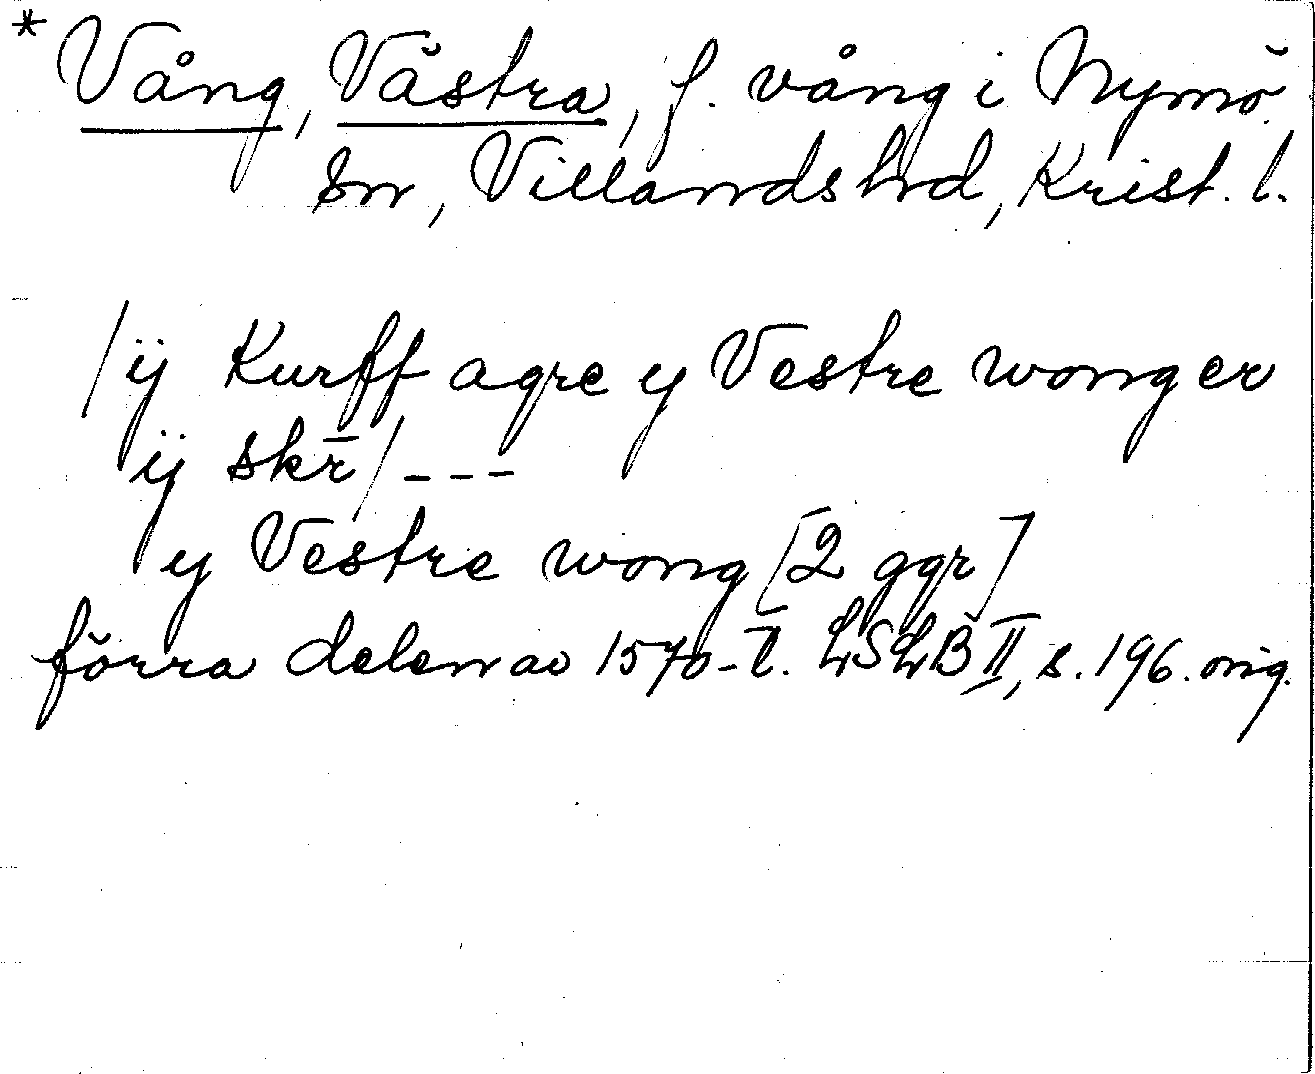 * Vång, Västra, f. vång i Nymö
sn, Villands hrd, Krist. l.
/ÿ Kurff agre y Vestre wong er
ÿ skr̄/ - - -
y Vestre wong [2 ggr]
förra delen av 1570-t. LSLB II, s. 196. orig.